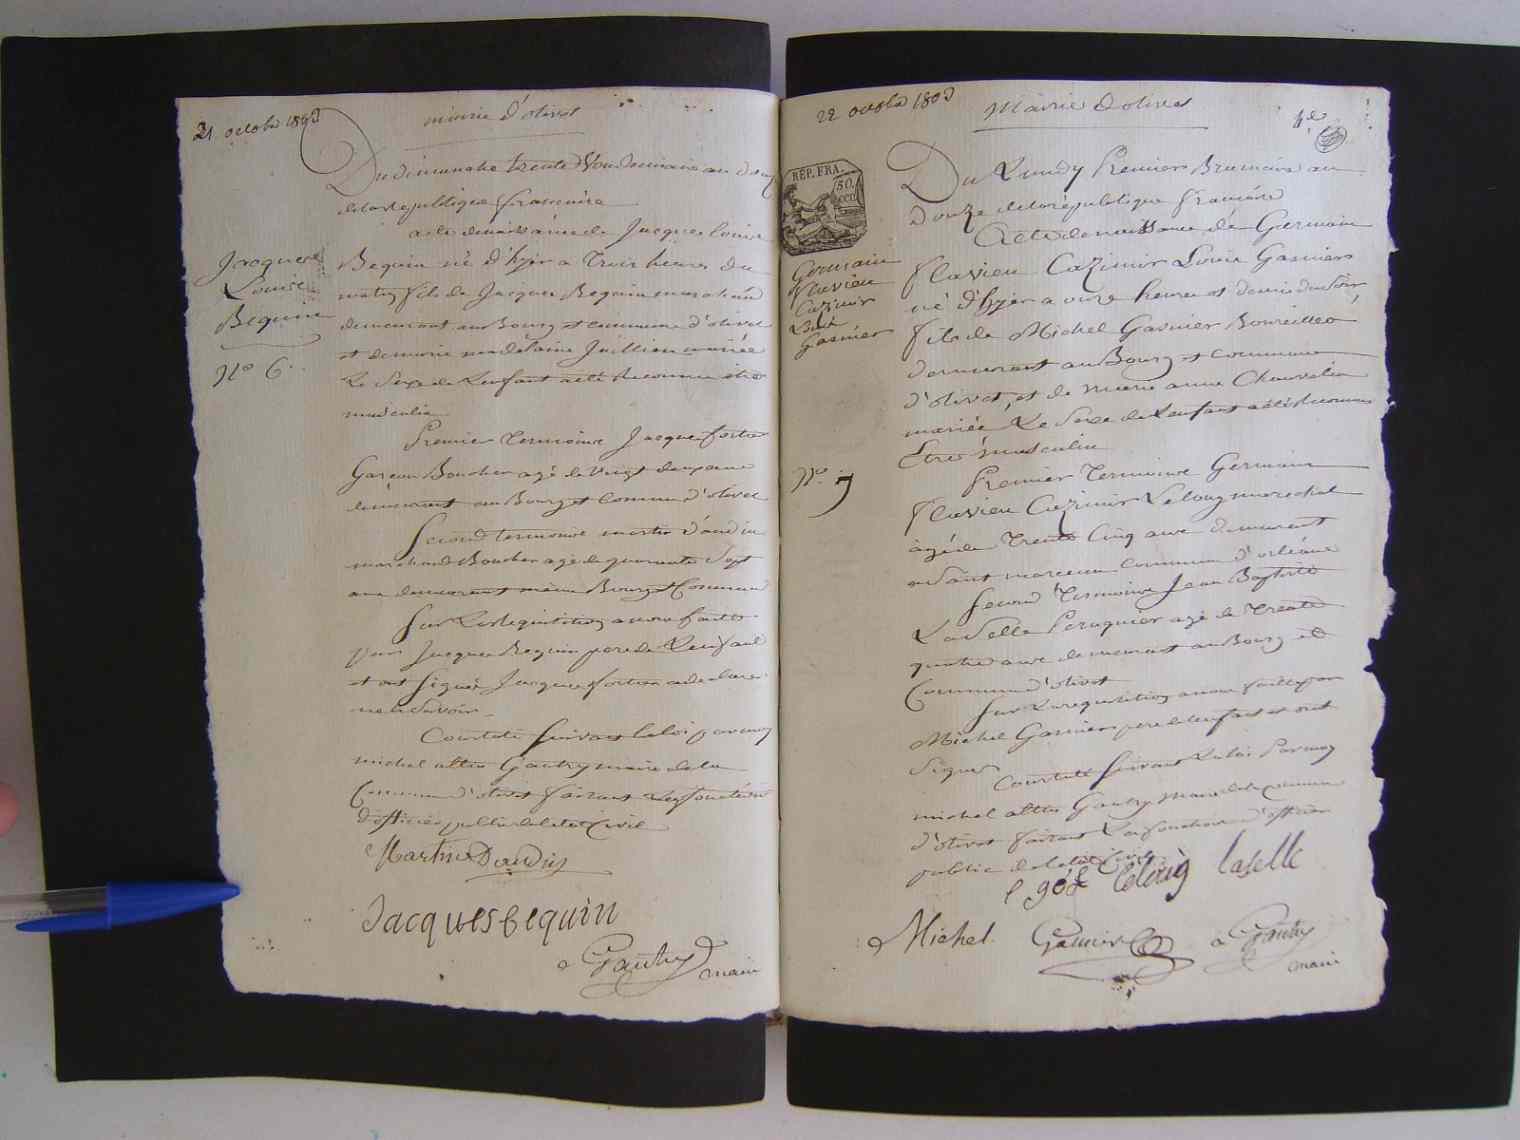 21 octobre 1803
mairie d'olivet
Du dimanche trente Vendemiaire an douze
de la republique francaise
acte de naissance de Jacques Louis
Jacques
Louis
Bequin
N° 6.
Bequin né d'hyer a trois heures du
matin fils de Jacques Bequin marchand
demeurant au Bourg et commune d'olivet
et de marie madelaine Juillien mariée
Le Sexe de Lenfant a eté Reconnu etre
masculin
Premier Termoins Jacques fortier
Garcon Boucher agé de vingt deux ans
demeurant au Bourg et Commune d'olivet
Second termoins martin daudin
marchand Boucher agé de quarante Sept
ans demeurant même Bourg et Commune
Sur La requisition a nous faitte
par Jacques Bequin pere de Lenfant
et ont Signé Jacques fortier a declaré
ne le Savoir
Constaté Suivant la loi par moy
michel Gautry maire de la
Commune d'olivet faisant Les fonctions
d'officier public de letat Civil
Martin Daudin
Jacques bequin
Gautry
maire
22 octobre 1803
Mairie d'olivet
REP. FRA.
50.
Du Lundy Premier Brumaire an
Douze de la republique francaise
Acte de naissance de Germain
Germain
flavien
Cazimir
Louis
Garnier
N°. 7
flavien Cazimir Louis Garnier
né d'hyer a onze heures et demie du Soir
fils de Michel Garnier
demeurant au Bourg et Commune
d'olivet, et de marie anne Chauvelin
mariée Le Sexe de Lenfant a été Reconnu
Etre masculin
Premier Termoins Germain
flavien Cazimir Leloug marechal
agé de Trente Cinq ans demeurant
a Saint marceau Commune d'orléans
Second Termoins Jean Baptiste
LaSelle Peruquier agé de Trente
quatre ans demeurant au Bourg et
Commune d'olivet
Sur La requisition a nous faitte par
Michel Garnier pere de lenfant et ont
Signé
Constaté Suivant La loi Par moy
michel Gautry Maire de la Commune
d'olivet faisant Les fonctions d'officier
public de letat Civil
Leloug laselle
Michel Garnier
Gautry
maire